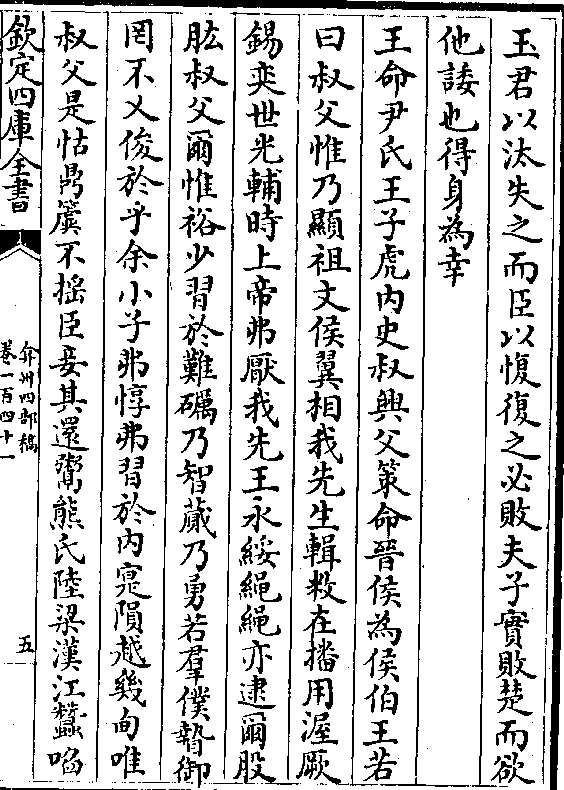 玉君以汰失之而臣以愎復之必敗夫子實敗楚而欲
他諉也得身為幸
王命尹氏王子虎内史叔興父策命晉侯為侯伯王若
曰叔父惟乃顯祖文侯翼相我先生輯敉在播用渥厥
錫奕世光輔時上帝弗厭我先王永綏繩繩亦逮爾股
肱叔父爾惟裕少習於難礪乃智蕆乃勇若羣僕暬御
罔不乂俊於乎余小子弗惇弗習於内寔隕越幾甸唯
叔父是怙鼎簴不搖臣妾其還鬻熊氏陸梁漢江蠶啗
欽定四庫全書
弇州四部稿
卷一百四十一
五